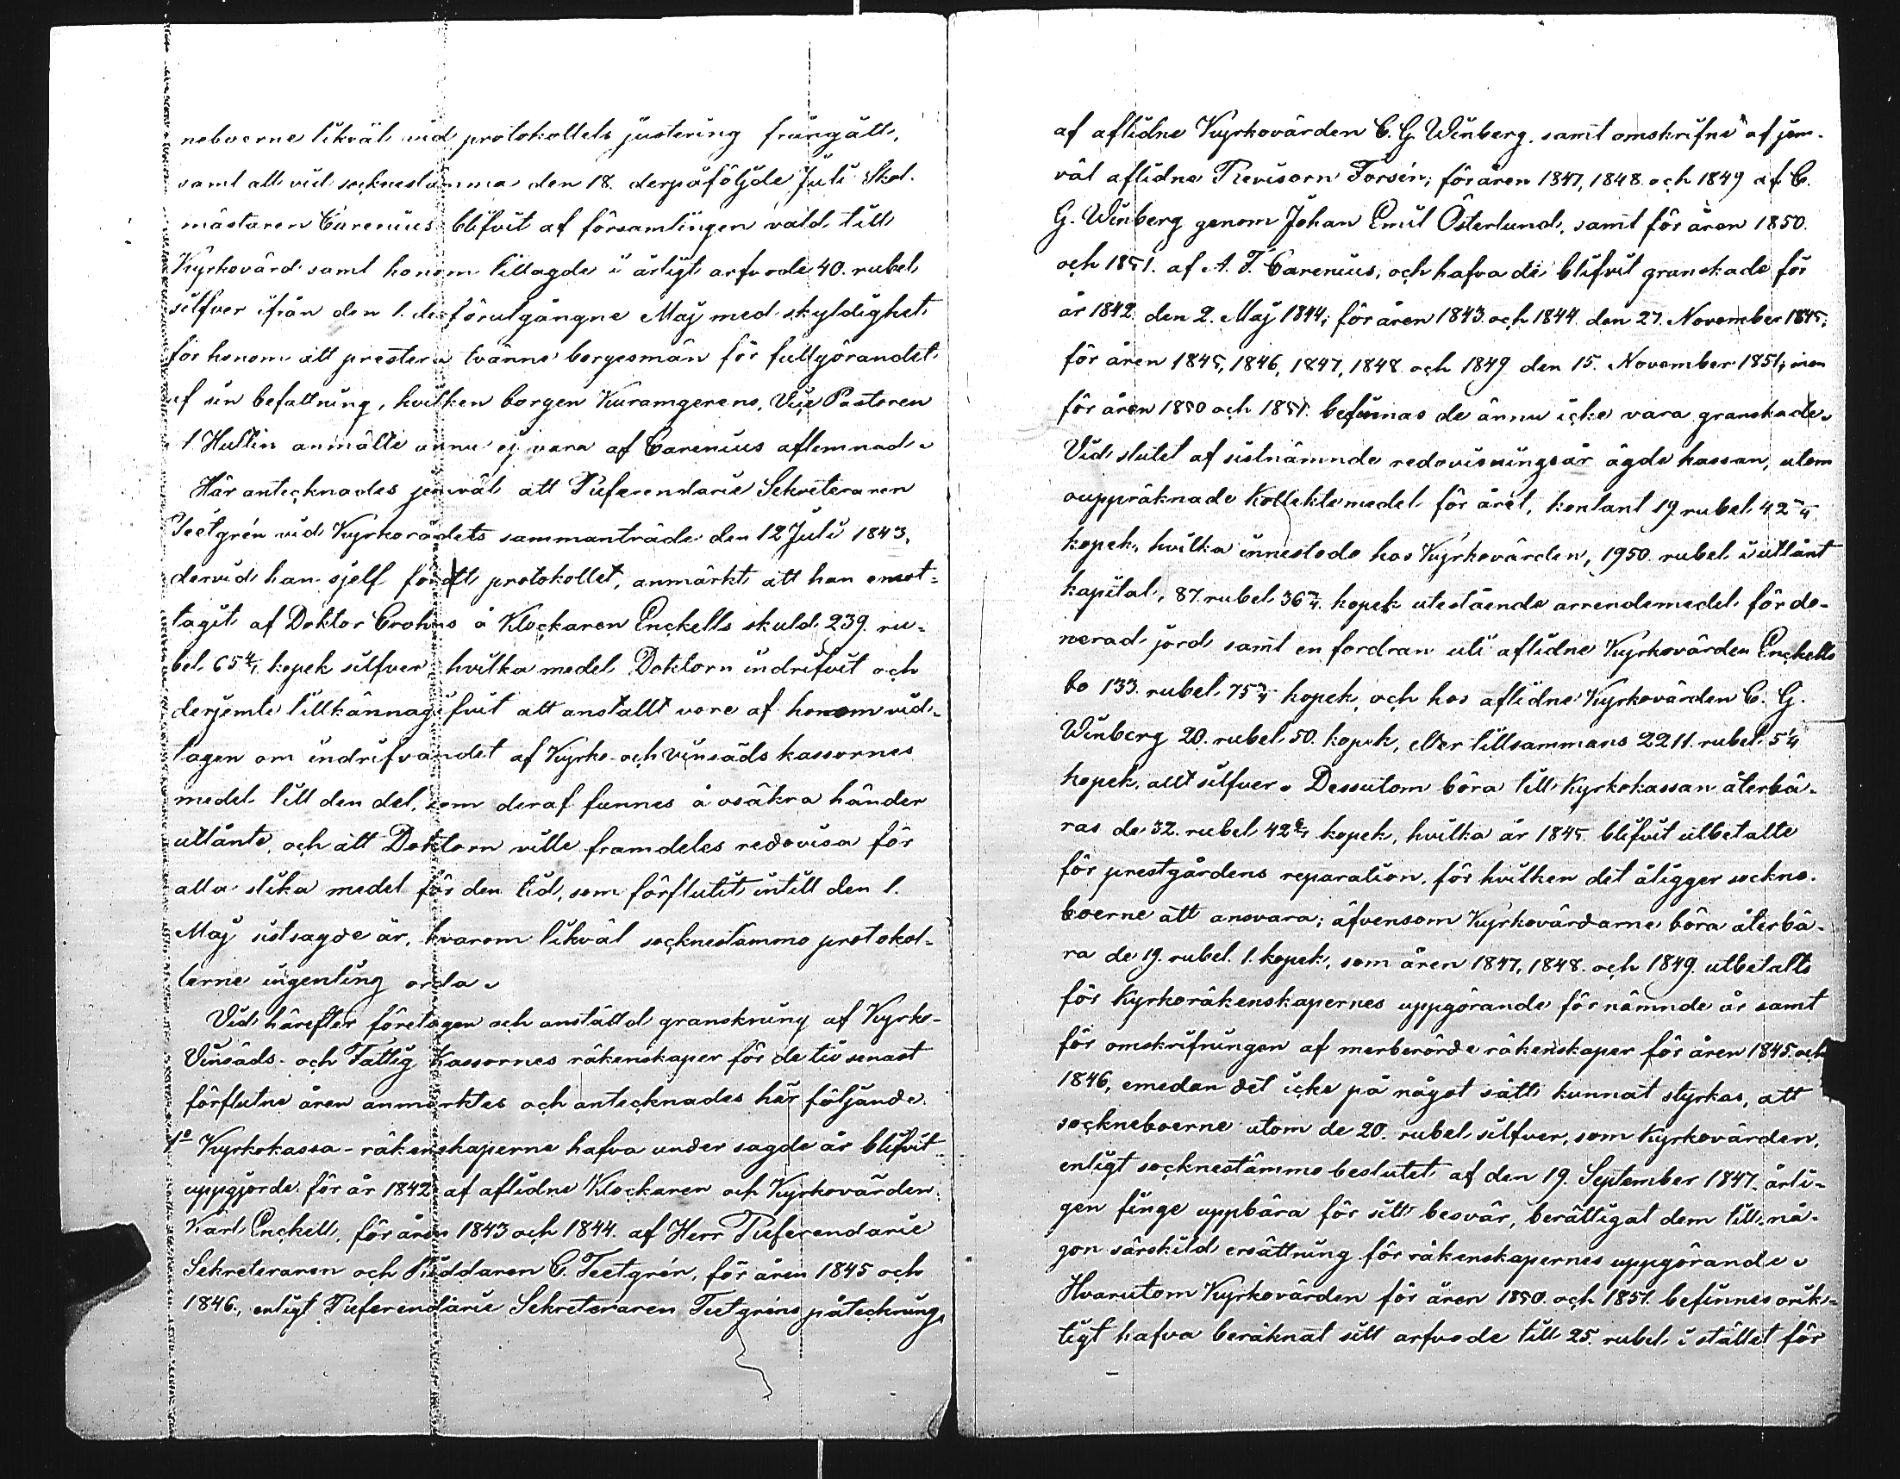 neboerne likväl vid protokollets justering frångått,
samt att vid socknestämma den 18. derpåföljde Juli Skol-
mästaren Carenius blifvit af församlingen vald till
Kyrkovärd samt honom tillagde i årligt arfvode 40. rubel
silfver ifrån den 1. de förutgångne Maj med skyldighet
för honom att prestera tvänne borgesmän för fullgörandet
af sin befattning, hvilken borgen Kuramgerens, Vice Pastoren
Hultin anmälte ännu ej vara af Carenius aflemnad.
Här antecknades jemväl att Referendarie Sekreteraren
Teetgrén vid Kyrkorådets sammanträde den 12 Juli 1843,
dervid han sjelf fördt protokollet, anmärkt att han emot-
tagit af Doktor Crohns å Klockaren Enckells skuld 239. ru-
bel 65 4/7 kopek silfver hvilka medel Doktorn indrifvit och
derjemte tillkännagifvit att anstallt vore af honom vid-
tagen om indrifvandet af Kyrko- och vinsäds kassornes
medel till den del, som deraf funnes å osäkra händer
utlånte, och att Doktorn ville framdeles redovisa för
alla slika medel för den tid, som förflutit intill den 1.
Maj sistsagde år, hvarom likväl socknestämmo protokol-
lerne ingenting orda.
Vid härefter företagen och anställd granskning af Kyrko-
Vinsäds- och Fattig Kassornes räkenskaper för de tio senast
förflutne åren anmärktes och antecknades här följande.
1º Kyrkokassa-räkenskaperne hafva under sagde år blifvit
uppgjorde för år 1842 af aflidne Klockaren och Kyrkovärden
Karl Enckell, för åren 1843 och 1844. af Herr Referendarie
Sekreteraren och Riddaren C. Teetgrén, för åren 1845 och
1846, enligt Referendarie Sekreteraren Teetgréns påteckning,
af aflidne Kyrkovärden C. G. Winberg, samt omskrifne af jem-
väl aflidne Revisorn Forsén; för åren 1847, 1848 och 1849 af C.
G. Winberg genom Johan Emil Österlund, samt för åren 1850.
och 1851. af A. F. Carenius, och hafva de blifvit granskade för
år 1842 den 2. Maj 1844; för åren 1843 och 1844 den 27. November 1845;
för åren 1845, 1846, 1847, 1848 och 1849 den 15. November 1851; men
för åren 1850 och 1851. befinnas de ännu icke vara granskade.
Vid slutet af sistnämnde redovisningsår ägde kassan, utom
ouppräknade Kollektemedel för året, kontant 19 rubel 42
kopek, hvilka innestodo hos Kyrkovärden, 1950. rubel i utlånt
kapital, 87. rubel 36 kopek utestående arrendemedel för do-
nerad jord samt en fordran uti aflidne Kyrkovärden Enckells
bo 133. rubel 75 kopek, och hos aflidne Kyrkovärden C. G.
Winberg 20. rubel 50. kopek, eller tillsammans 2211. rubel 5
kopek, allt silfver. Dessutom böra till Kyrkokassan återbä-
ras de 32. rubel 42 6/7 kopek, hvilka år 1845 blifvit utbetalte
för prestgårdens reparation, för hvilken det åligger sockne-
boerne att ansvara; äfvensom Kyrkovärdarne böra återbä-
ra de 19. rubel 1. kopek, som åren 1847, 1848. och 1849. utbetalts
för Kyrkoräkenskapernes uppgörande för nämnde år samt
för omskrifningen af merberörde räkenskaper för åren 1845. och
1846, emedan det icke på något sätt kunnat styrkas, att
sockneboerne utom de 20. rubel silfver, som Kyrkovärden,
enligt socknestämmo beslutet af den 19. September 1847. årli-
gen finge uppbära för sitt besvär, berättigat dem till nå-
gon särskild ersättning för räkenskapernes uppgörande.
Hvarutom Kyrkovärden för åren 1850. och 1851. befinnes orik-
tigt hafva beräknat sitt arfvode till 25. rubel i stället för